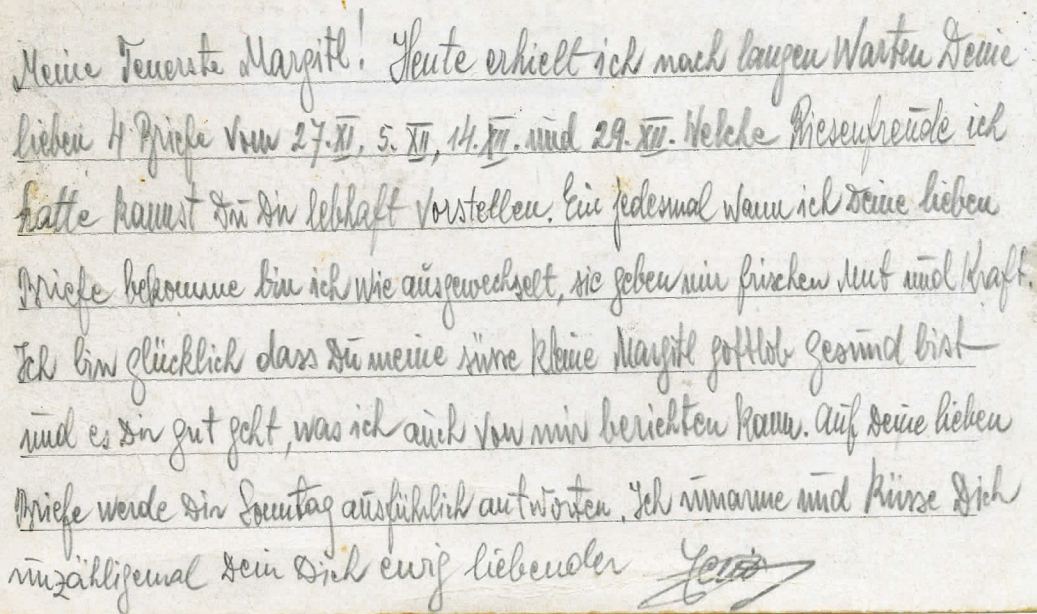 Meine Teuerste Margitl! Heute erhielt ich nach langen Warten Deine
lieben 4 Briefe vom 27.XI, 5.XII, 14.XII. und 29.XII. Welche Riesenfreude ich
hatte kannst Du Dir lebhaft vorstellen. Ein jedesmal wann ich Deine lieben
Briefe bekomme bin ich wie ausgewechselt, sie geben mir frischen Mut und Kraft.
Ich bin glücklich dass Du meine süsse kleine Margitl gottlob gesund bist
und es Dir gut geht, was ich auch von mir berichten kann. Auf Deine lieben
Briefe werde Dir Sonntag ausführlich antworten. Ich umarme und küsse Dich
unzähligemal Dein Dich ewig liebender